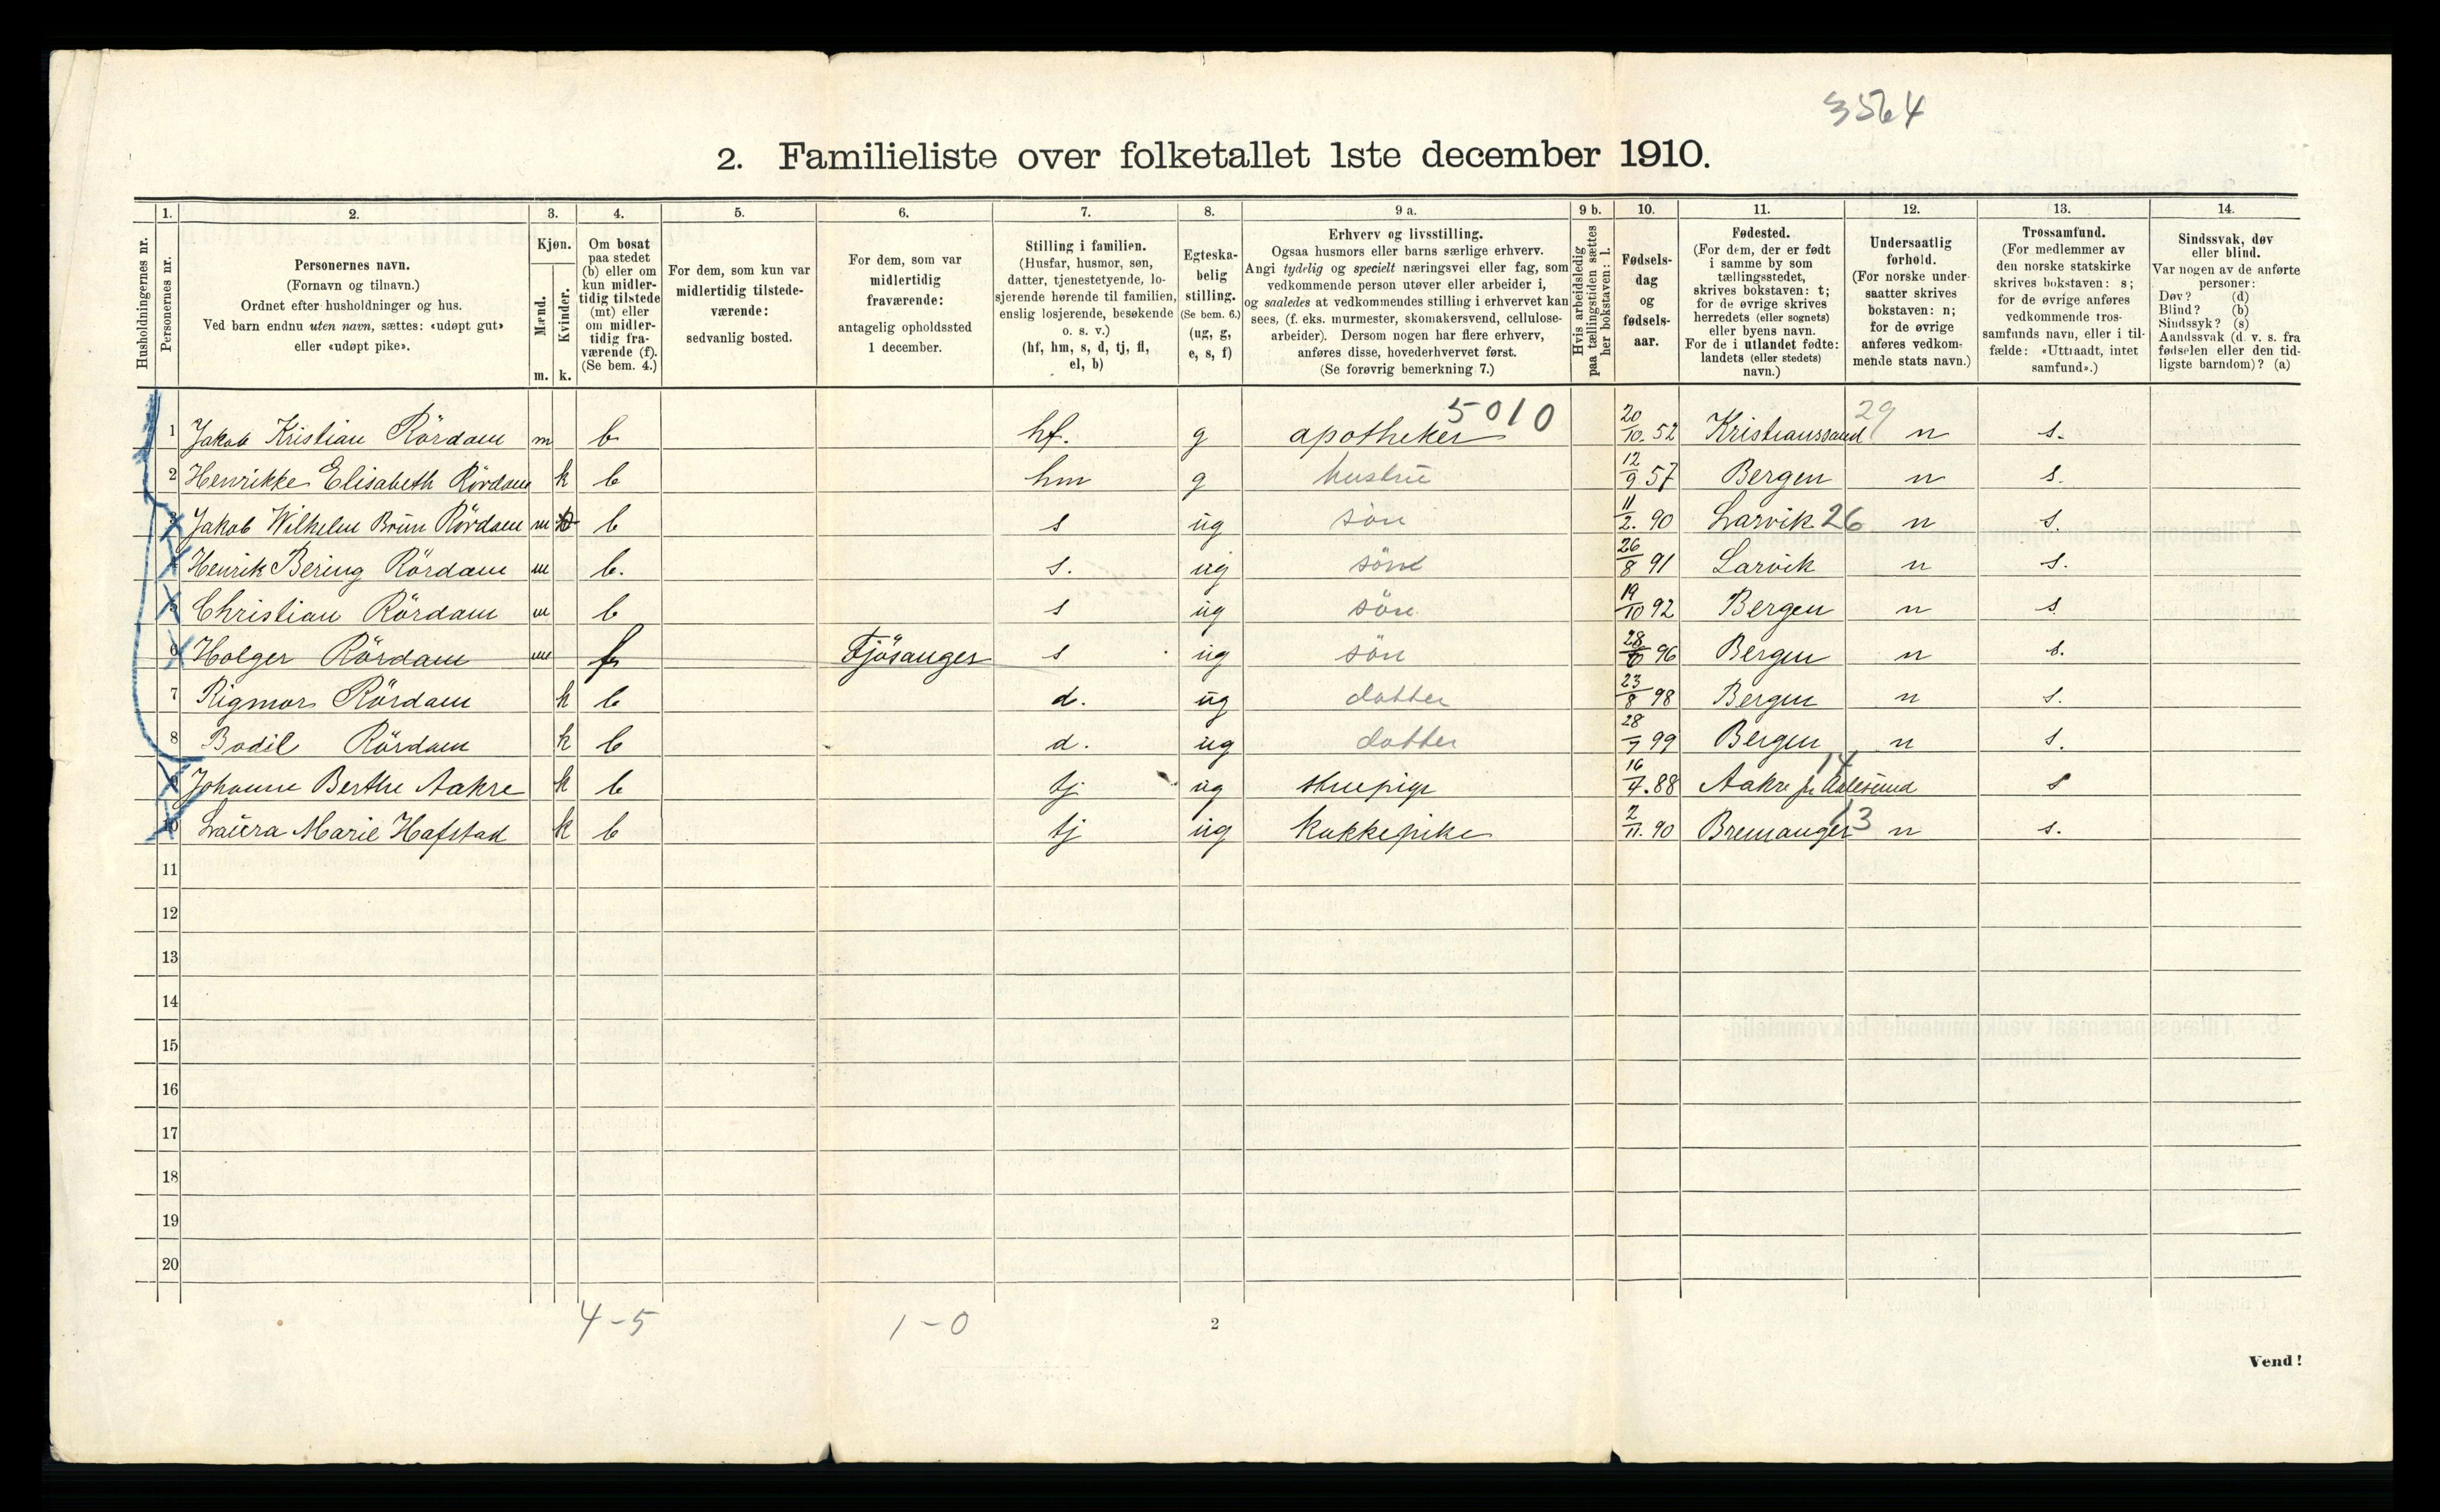 3564
2. Familieliste over folketallet 1ste december 1910.
1. 2. 3. 4. 5. 6. 7. 8. 9 a. 9 b. 10. 11. 12. 13. 14.
Husholdningernes nr.
Personernes nr.
Personernes navn.
(Fornavn og tilnavn.)
Ordnet efter husholdninger og hus.
Ved barn endnu uten navn, sættes: «udøpt gut»
eller «udøpt pike».
Kjøn.
Mænd.
Kvinder.
m. k.
Om bosat
paa stedet
(b) eller om
kun midler-
tidig tilstede
(mt) eller
om midler-
tidig fra-
værende (f).
(Se bem. 4.)
For dem, som kun var
midlertidig tilstede-
værende:
sedvanlig bosted.
For dem, som var
midlertidig
fraværende:
antagelig opholdssted
1 december.
Stilling i familien.
(Husfar, husmor, søn,
datter, tjenestetyende, lo-
sjerende hørende til familien,
enslig losjerende, besøkende
o. s. v.)
(hf, hm, s, d, tj, fl,
el, b)
Egteska-
belig
stilling.
(Se bem. 6.)
(ug, g,
e, s, f)
Erhverv og livsstilling.
Ogsaa husmors eller barns særlige erhverv.
Angi tydelig og specielt næringsvei eller fag, som
vedkommende person utøver eller arbeider i,
og saaledes at vedkommendes stilling i erhvervet kan
sees, (f. eks. murmester, skomakersvend, cellulose-
arbeider). Dersom nogen har flere erhverv,
anføres disse, hovederhvervet først.
(Se forøvrig bemerkning 7.)
Hvis arbeidsledig
paa tællingstiden sættes
her bokstaven: l.
Fødsels-
dag
og
fødsels-
aar.
Fødested.
(For dem, der er født
i samme by som
tællingsstedet,
skrives bokstaven: t;
for de øvrige skrives
herredets (eller sognets)
eller byens navn.
For de i utlandet fødte:
landets (eller stedets)
navn.)
Undersaatlig
forhold.
(For norske under-
saatter skrives
bokstaven: n;
for de øvrige
anføres vedkom-
mende stats navn.)
Trossamfund.
(For medlemmer av
den norske statskirke
skrives bokstaven: s;
for de øvrige anføres
vedkommende tros-
samfunds navn, eller i til-
fælde: «Uttraadt, intet
samfund».)
Sindssvak, døv
eller blind.
Var nogen av de anførte
personer:
Døv? (d)
Blind? (b)
Sindssyk? (s)
Aandssvak (d. v. s. fra
fødselen eller den tid-
ligste barndom)? (a)
5010 29
1 Jakob Kristian Rördam m b hf. g apotheker 20/10. 52 Kristianssand n s.
2 Henrikke Elisabeth Rördam k b hm g hustru 12/9 57 Bergen n s.
3 Jakob Wilhelm Brun Rördam m b s ug sön 11/2. 90 Larvik 26 n s.
4 Henrik Bering Rördam m b. s. ug sön 26/8 91 Larvik n s.
5 Christian Rördam m b s ug sön 19/10 92 Bergen n s.
6 Holger Rördam m f Fjösanger s ug sön 96 Bergen n s.
7 Rigmor Rördam k b d. ug datter 23/8 98 Bergen n s.
8 Bodil Rördam k b d. ug datter 28/7 99 Bergen n s.
9 Johanne Berthe Aakre k b tj ug stuepige 16/4. 88 Aakre pr Aalesund 14 s
10 Laura Marie Hafstad k b tj ug kokkepike 2/11. 90 Bremanger 13 n s.
11
12
13
14
15
16
17
18
19
20
4-5 1-0
2
Vend!